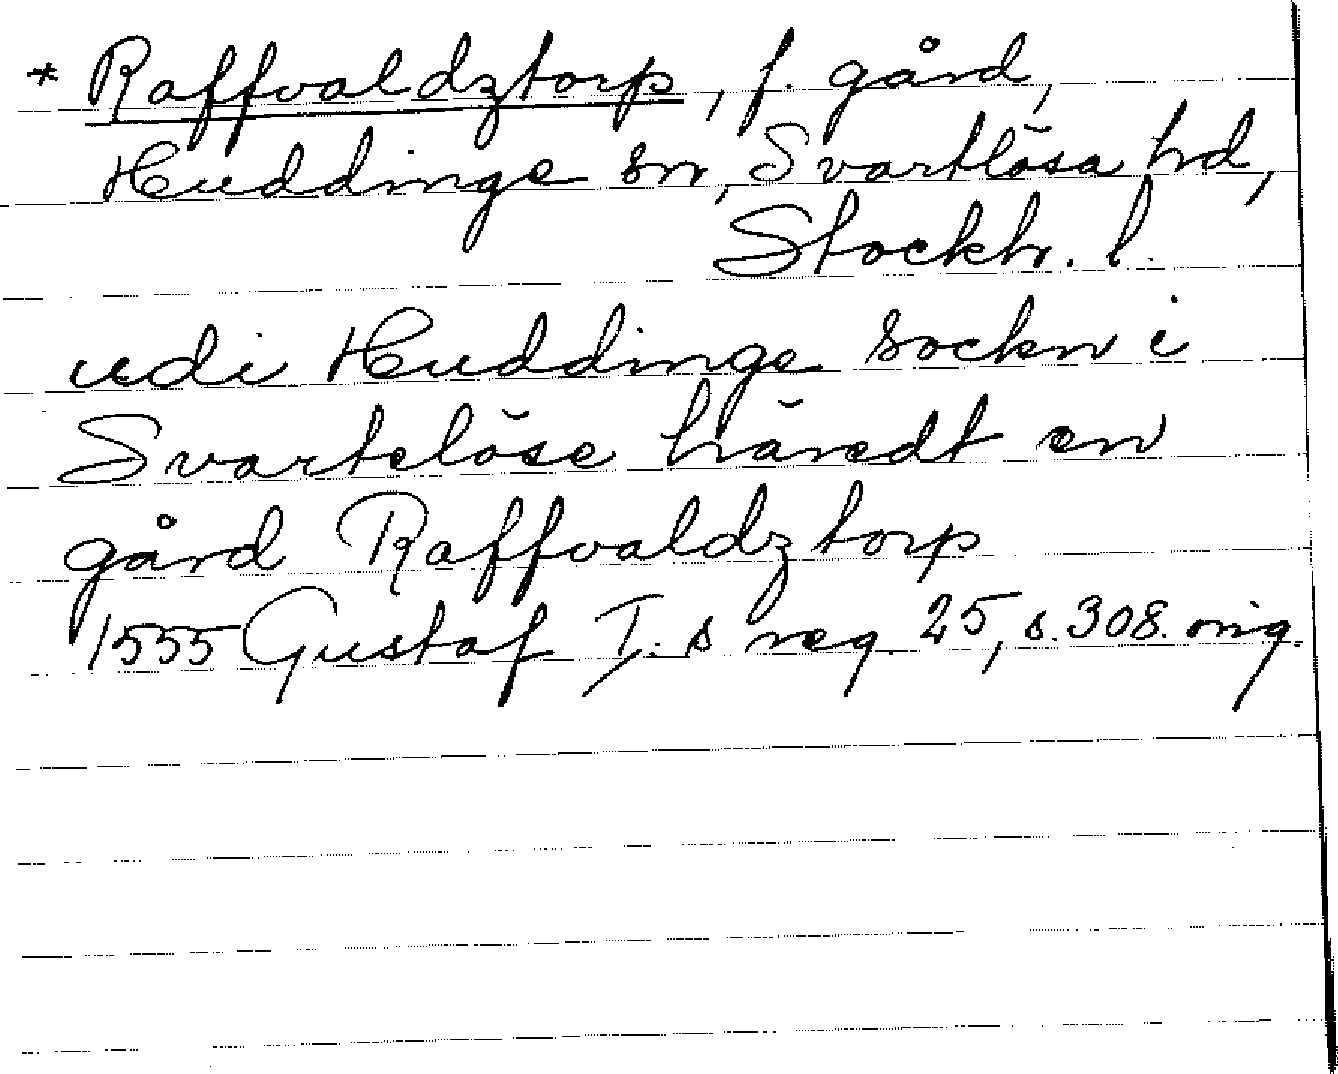 * Raffvaldztorp, f. gård,
Huddinge sn, Svartlösa hd,
Stockh. l.
udi Huddinge sockn i
Svartelöse häredt en
gård Raffvaldztorp
1555 Gustaf I.s reg. 25, s. 308. orig.